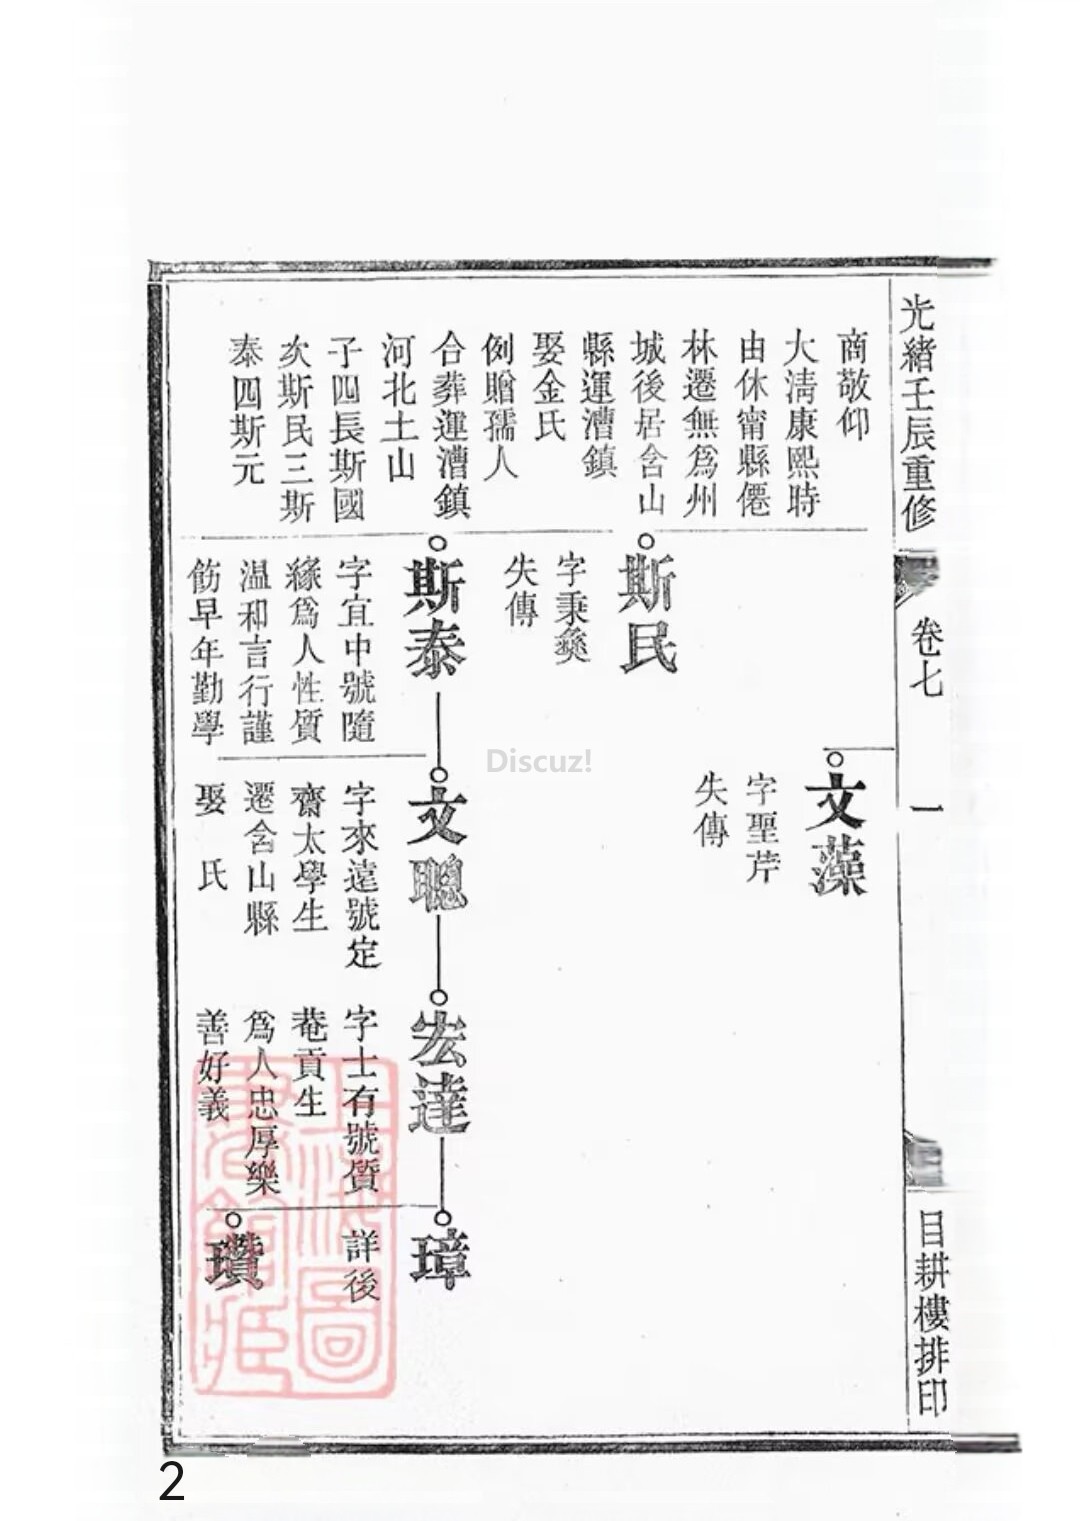 光緒壬辰重修
卷七
一
目耕樓排印
商敬仰
大淸康熙時
由休甯縣僊
林遷無爲州
城後居含山
縣運漕鎮
娶金氏
例贈孺人
合葬運漕鎮
河北土山
子四長斯國
次斯民三斯
泰四斯元
斯民
字秉彝
失傳
斯泰
字宜中號隨
緣爲人性質
温和言行謹
飭早年勤學
文藻
字聖芹
失傳
文聰
字來遠號定
齋太學生
遷含山縣
娶 氏
宏達
字士有號質
菴貢生
爲人忠厚樂
善好義
璋
詳後
瓚
上海圖
書館藏
Discuz!
2